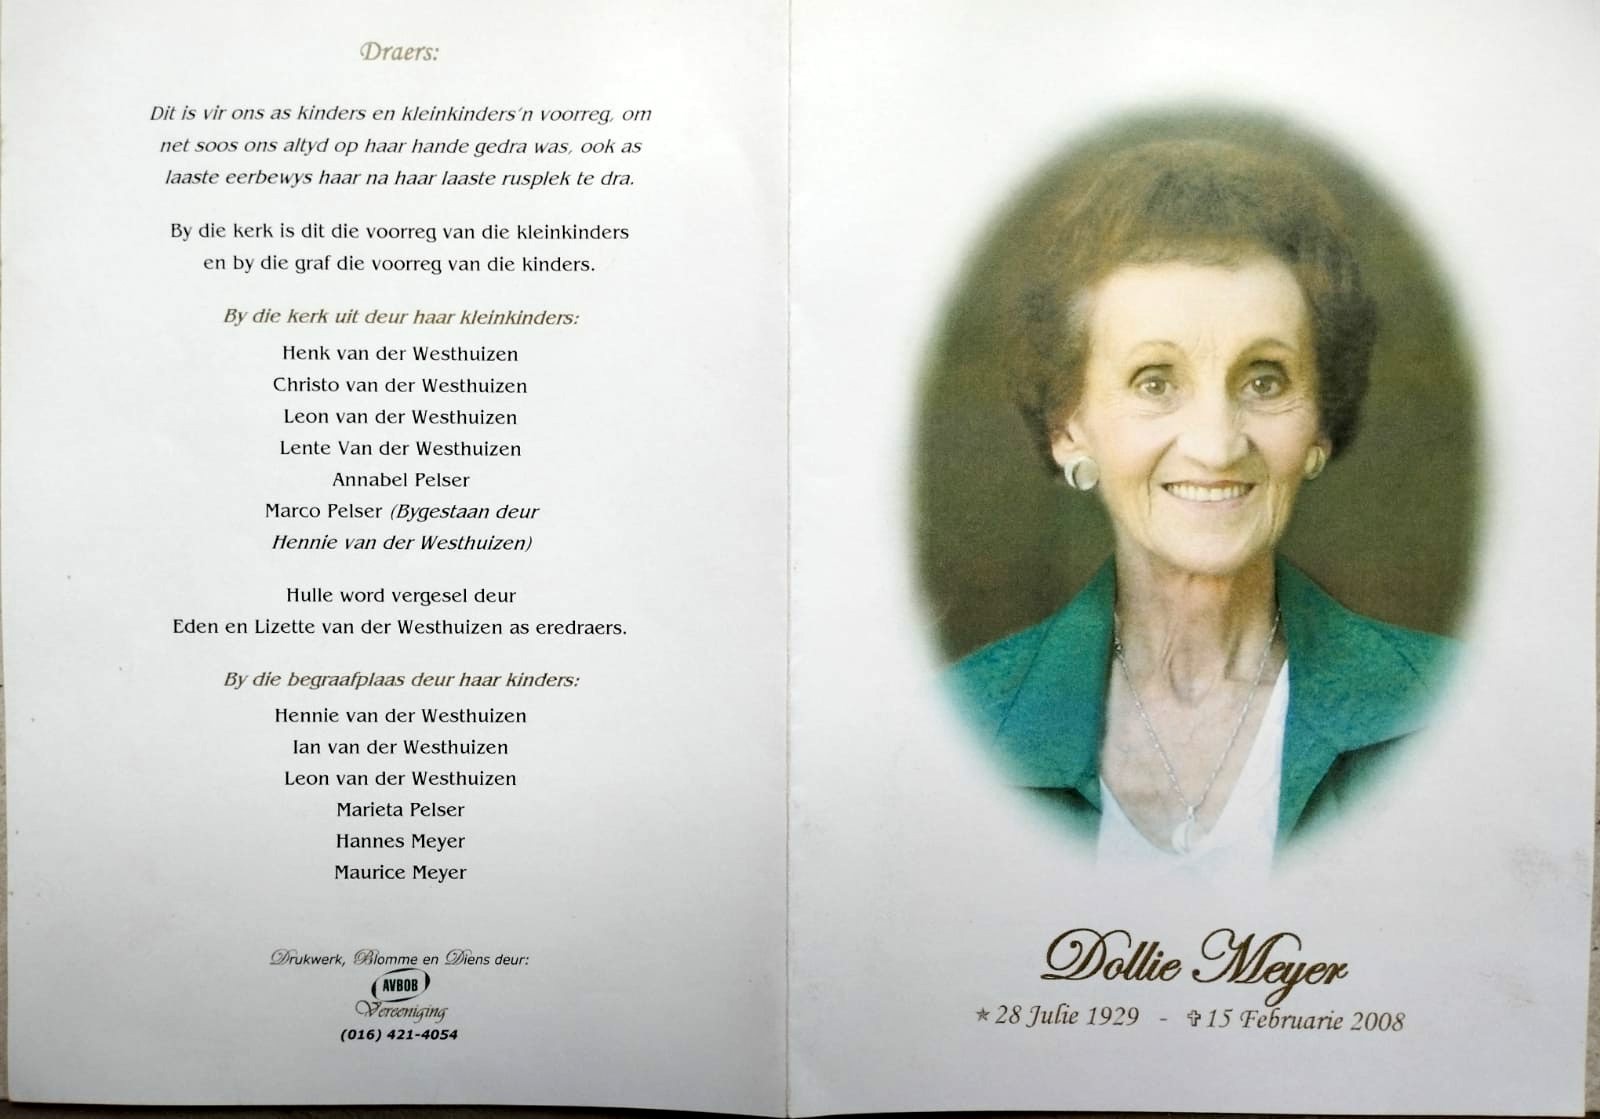 Draers:
Dit is vir ons as kinders en kleinkinders'n voorreg, om
net soos ons altyd op haar hande gedra was, ook as
laaste eerbewys haar na haar laaste rusplek te dra.
By die kerk is dit die voorreg van die kleinkinders
en by die graf die voorreg van die kinders.
By die kerk uit deur haar kleinkinders:
Henk van der Westhuizen
Christo van der Westhuizen
Leon van der Westhuizen
Lente Van der Westhuizen
Annabel Pelser
Marco Pelser (Bygestaan deur
Hennie van der Westhuizen)
Hulle word vergesel deur
Eden en Lizette van der Westhuizen as eredraers.
By die begraafplaas deur haar kinders:
Hennie van der Westhuizen
Ian van der Westhuizen
Leon van der Westhuizen
Marieta Pelser
Hannes Meyer
Maurice Meyer
Drukwerk, Blomme en Diens deur:
AVBOB
Vereeniging
(016) 421-4054
Dollie Meyer
✯ 28 Julie 1929 - ✞ 15 Februarie 2008